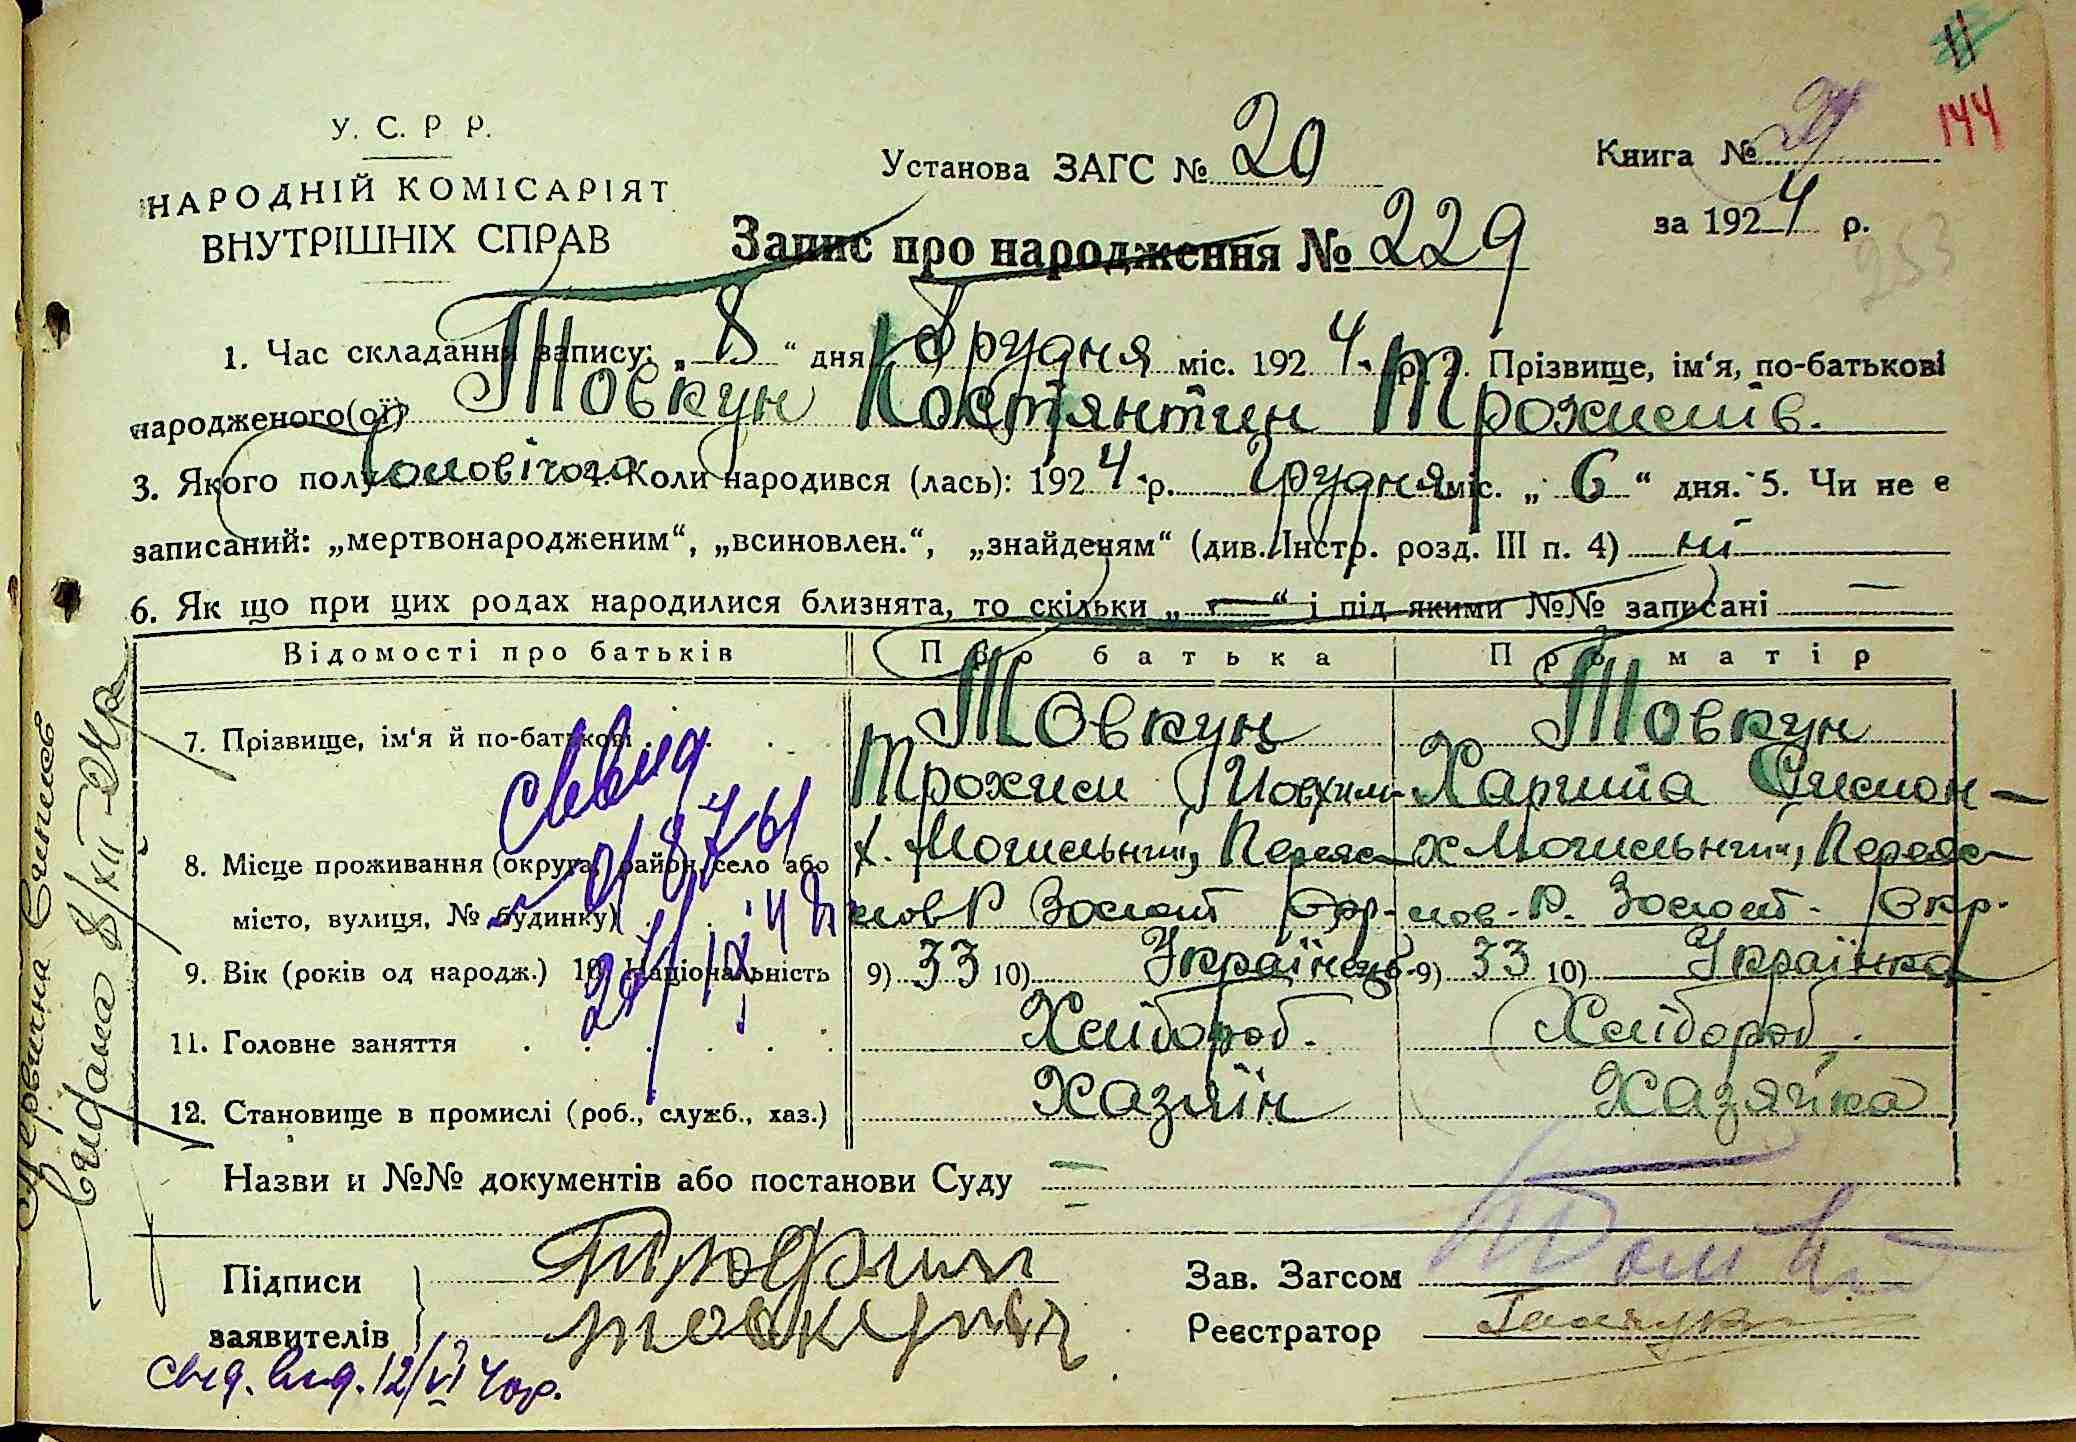 11
144
У. С. Р Р.
НАРОДНІЙ КОМІСАРІЯТ
ВНУТРІШНІХ СПРАВ
Установа ЗАГС № 20
Книга №
за 1924 р.
253
Запис про народження № 229
1. Час складання запису: „ 8 “ дня Грудня міс. 1924 р. 2. Прізвище, ім‘я, по-батькові
народженого(ої) Товкун Костянтин Трохимів.
3. Якого полу Чоловічого 4. Коли народився (лась): 1924 р. Грудня міс. „ 6 “ дня. 5. Чи не є
записаний: „мертвонародженим“, „всиновлен.“, „знайденям“ (див. Інстр. розд. III п. 4) ні
6. Як що при цих родах народилися близнята, то скільки „ — “ і під якими №№ записані —
Відомості про батьків Про батька Про матір
7. Прізвище, ім‘я й по-батькові Товкун Товкун
Трохим Йовхим- Харитя Симон-
8. Місце проживання (округа, район, село або х. Могильний, Переяс- х Могильний, Переяс-
місто, вулиця, № будинку) лов Р Золот Окр- лов-Р. Золот. Окр.
9. Вік (років од народж.) 10. Національність 9) 33 10) Українець 9) 33 10) Українка
11. Головне заняття Хлібороб. Хлібороб.
12. Становище в промислі (роб., служб., хаз.) Хазяїн Хазяйка
Назви и №№ документів або постанови Суду —
Підписи
заявителів
Трофим
Зав. Загсом
Реєстратор
свид. выд. 12/VI 40р.
Первична выпись
выдана 8/XII-24р